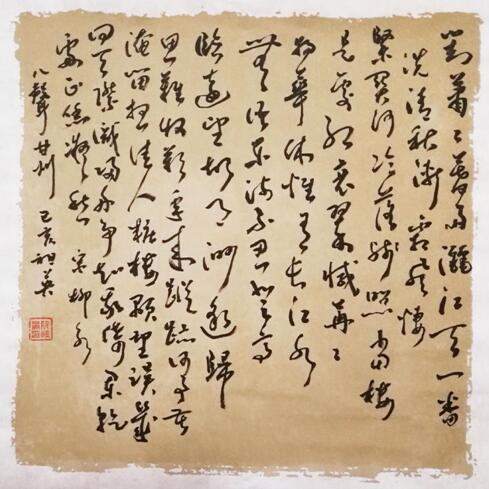 對蕭〻暮雨灑江天一番
洗清秋漸霜風悽
緊關河冷落殘照當樓
是處紅衰翠減苒〻
物華休惟有長江水
無語東流不忍登高
臨遠望故鄉渺邈歸
思難收歎年來蹤跡何事苦
淹留想佳人妝樓顒望誤幾
回天際識歸舟爭知我倚闌干
處正恁凝愁 宋柳永
八聲甘州 己亥祖英